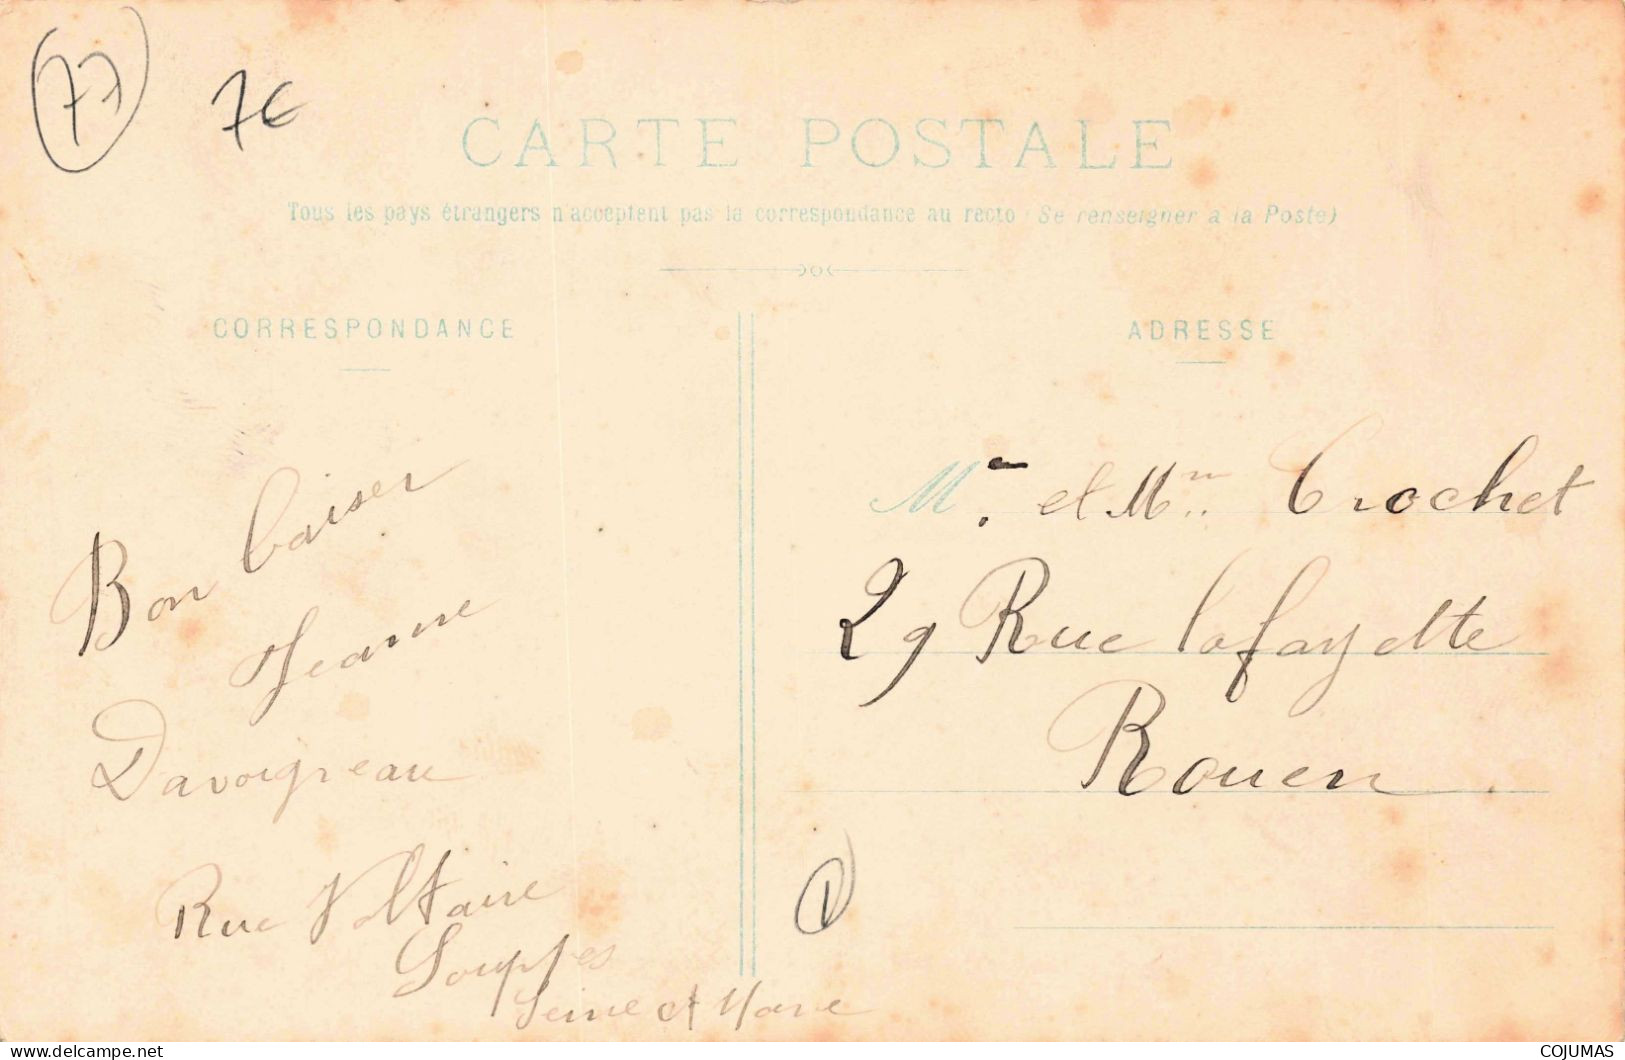 77
7€
CARTE POSTALE
Tous les pays étrangers n'acceptent pas la correspondance au recto (Se renseigner à la Poste)
CORRESPONDANCE
Bon baiser
Jeanne
Davoigneau
Rue Voltaire
Souppes
Seine et Marne
ADRESSE
Mr. et Mm.. Crochet
29 Rue lafayette
Rouen.
1
COJUMAS